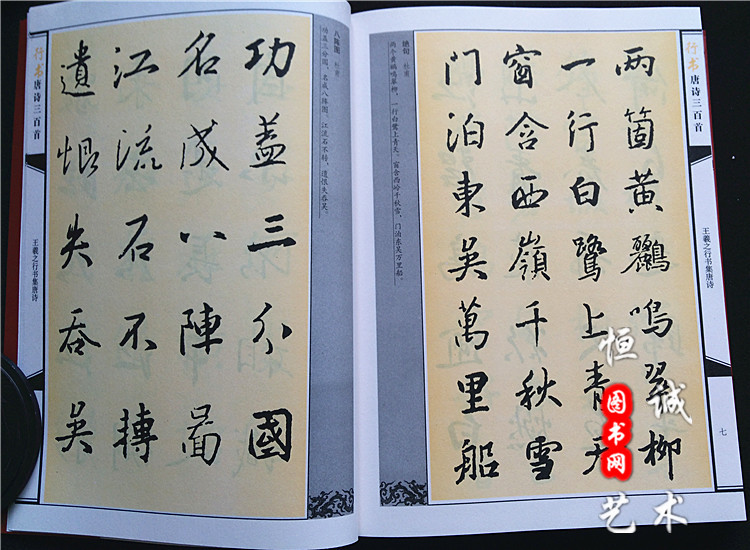 行书唐诗三百首
王羲之行书集唐诗
七
两箇黄鸝鳴翠柳
一行白鷺上青天
窗含西嶺千秋雪
門泊東吴萬里船
绝句 杜甫
两个黄鹂鸣翠柳，一行白鹭上青天。窗含西岭千秋雪，门泊东吴万里船。
八阵图 杜甫
功盖三分国，名成八阵图。江流石不转，遗恨失吞吴。
功盖三分國
名成八陣啚
江流石不轉
遺恨失吞吴
行书唐诗三百首
王羲之行书集唐诗
恒诚
图书网
艺术